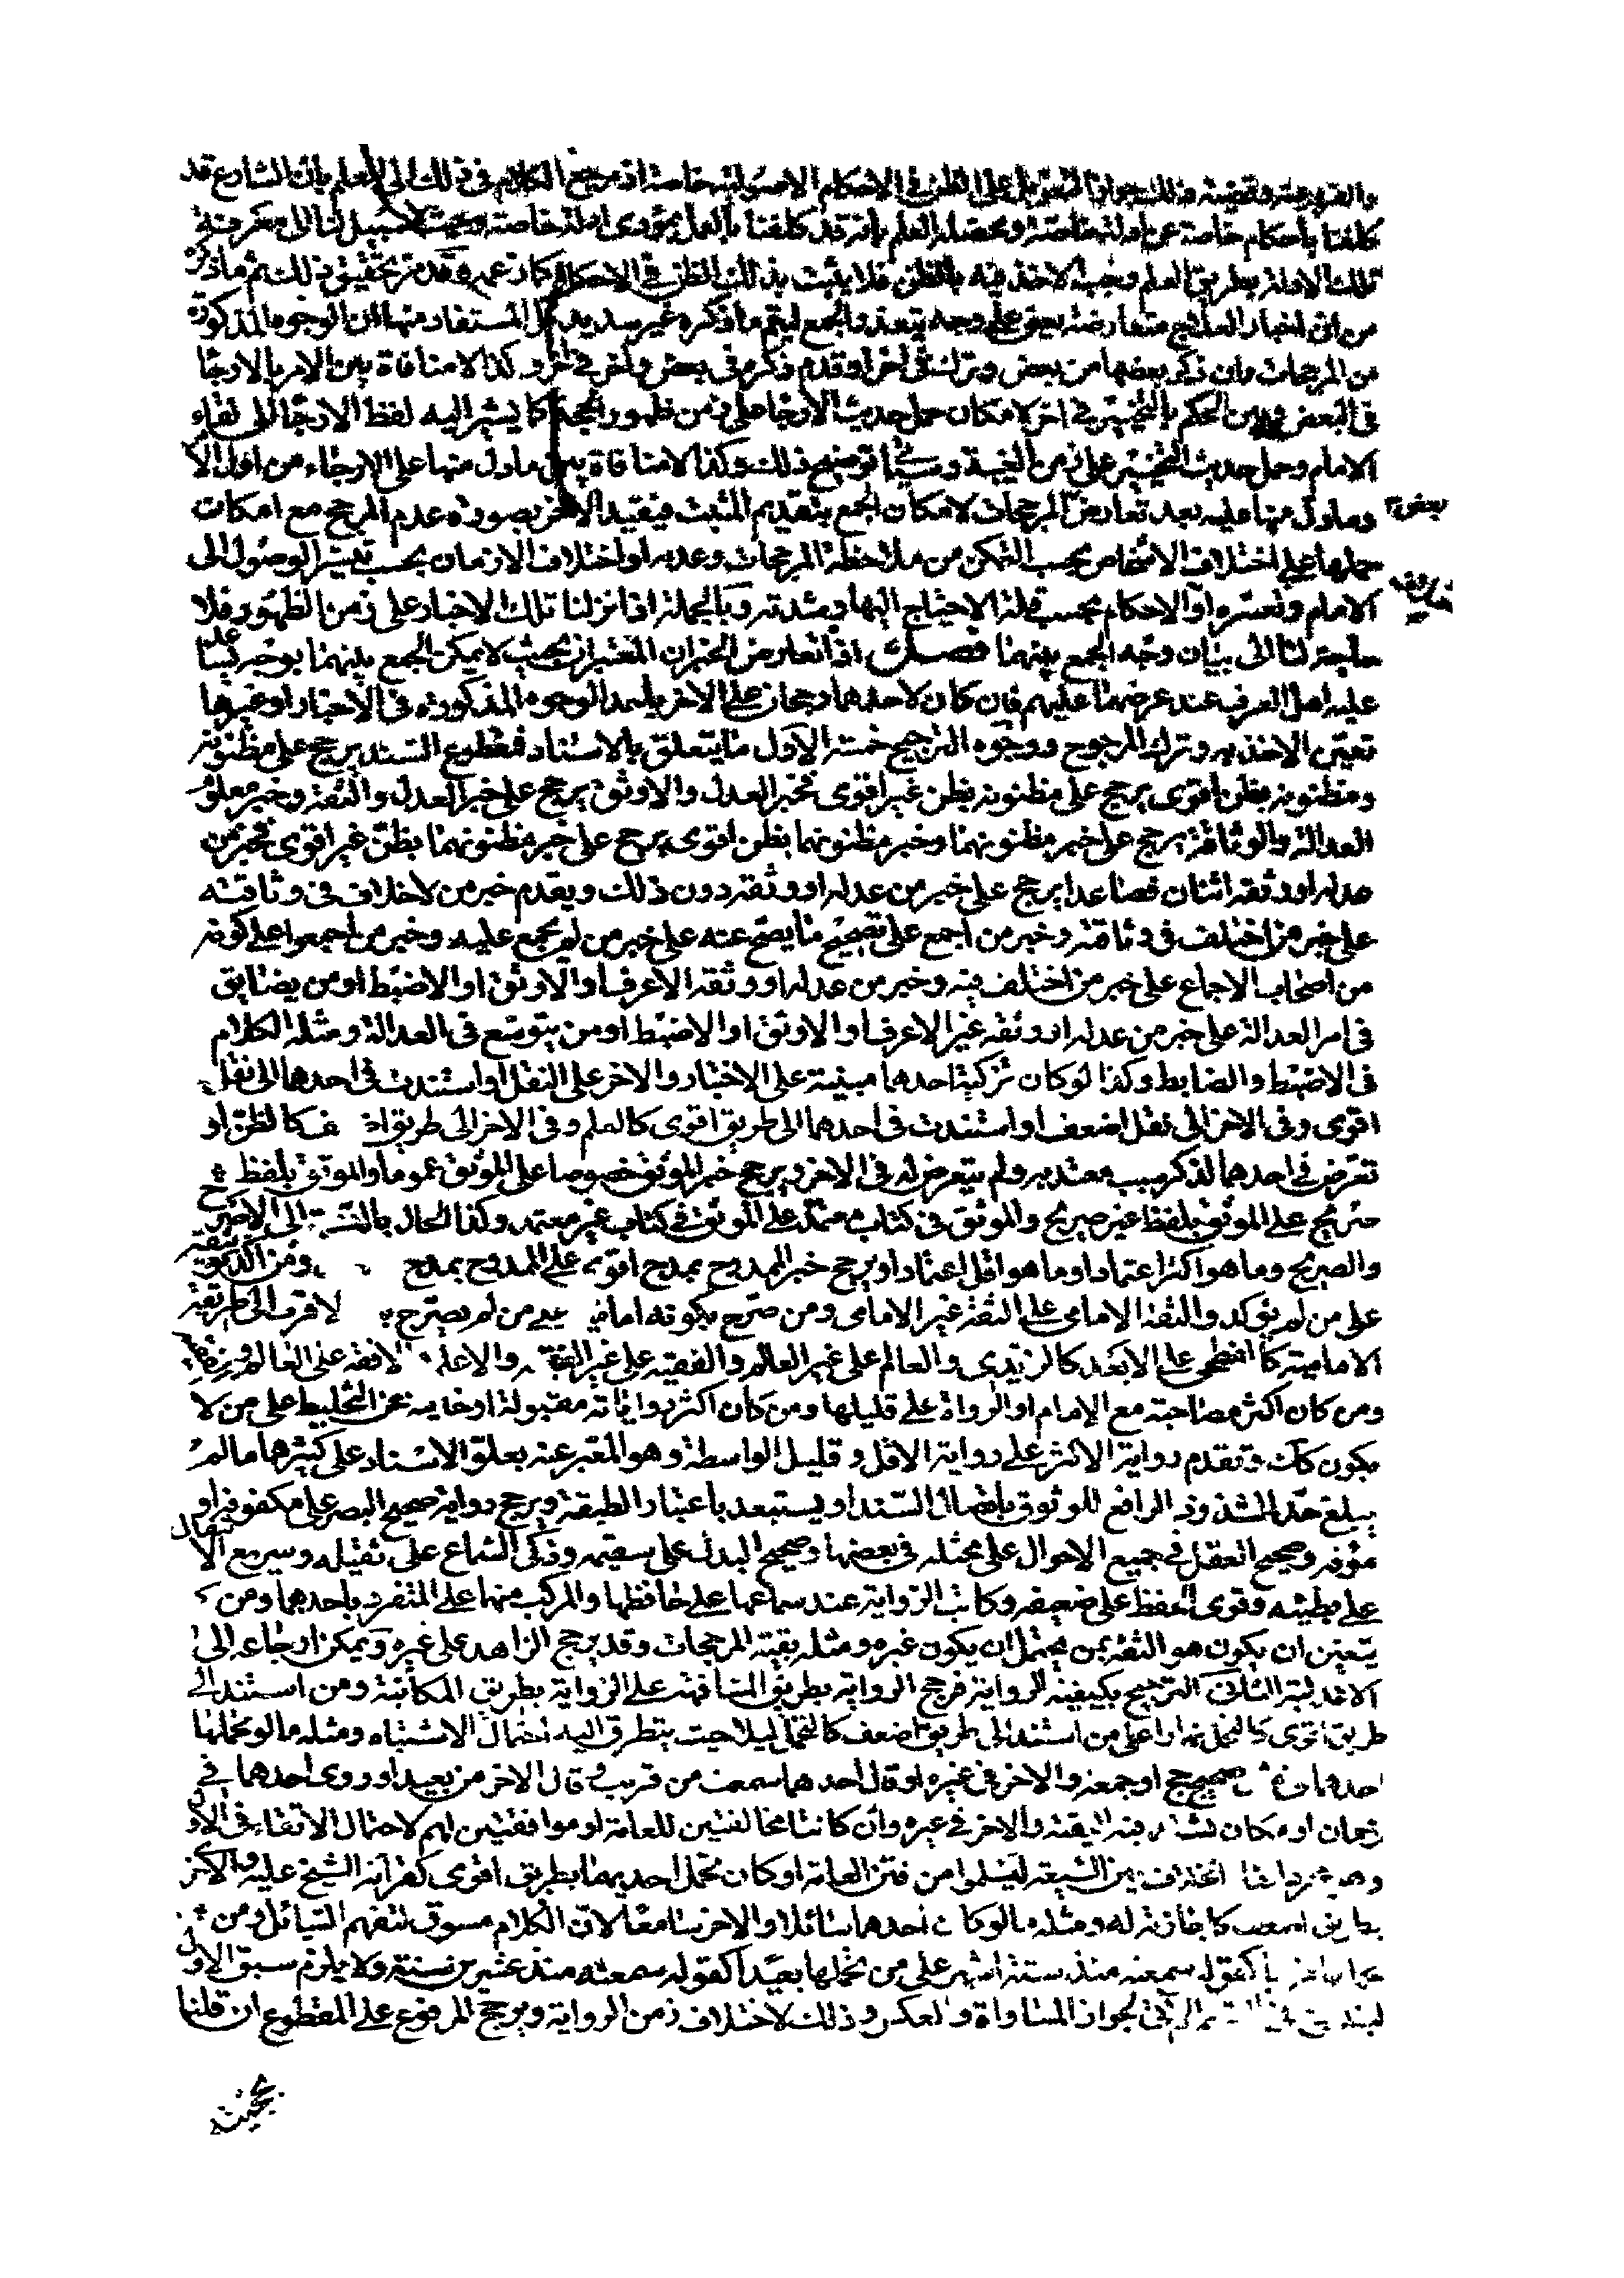 والفرعية وقضية ذلك جواز التعويل على الظن في الاحكام الاصولية خاصة اذ مرجع الكلام في ذلك الى العلم بان الشارع قد
كلفنا باحكام خاصة عن ادلة خاصة ومحصله العلم بانه قد كلفنا بالعمل بمؤدى ادلة خاصة وحيث لا سبيل لنا الى معرفة
تلك الادلة بطريق العلم وجب الاخذ فيه بالظن فلا يثبت بذلك الظن في الاحكام كما زعمه وقد مر تحقيق ذلك ثم ما ذكره
من ان اخبار العلاج متعارضة بعض على وجه يتعذر الجمع ليتم ما ذكره غير سديد بل المستفاد منها ان الوجوه المذكورة
من المرجحات وان ذكر بعضها من بعض وترك في اخر او قدم ذكره في بعض واخر في اخر وكذا لا منافاة بين الامر بالارجاء
في البعض وبين الحكم بالتخيير في اخر لامكان حمل حديث الارجاء على زمن ظهور الحجة كما يشير اليه لفظ الارجاء الى لقاء
الامام وحمل حديث التخيير على زمن الغيبة وسيجئ توضيح ذلك وكذا لا منافاة بين ما دل منها على الارجاء من اول الا
وما دل منها عليه بعد تعارض المرجحات لامكان الجمع بتقديم المثبت فيقيد الاخر بصورة عدم المرجح مع امكان
بعض
حملها على اختلاف الاشخاص بحسب التمكن من ملاحظة المرجحات وعدمه او اختلاف الازمان بحسب تيسر الوصول الى
الامام وتعسره او الاحكام بحسب قلة الاحتياج اليها وشدته وبالجملة اذا نزلنا تلك الاخبار على زمن الظهور فلا
حاجة لنا الى بيان وجه الجمع بينهما فصل اذا تعارض الخبران المعتبران بحيث لا يمكن الجمع بينهما بوجه يساعد
عليه اهل العرف عند عرضهما عليهم فان كان لاحدهما رجحان على الاخر باحد الوجوه المذكورة في الاخبار او غيرها
تعين الاخذ به وترك المرجوح ووجوه الترجيح خمسة الاول ما يتعلق بالاسناد فمقطوع السند يرجح على مظنونه
ومظنونه بظن اقوى يرجح على مظنونه بظن غير اقوى فخبر العدل والاوثق يرجح على خبر العدل والثقة وخبر معلوم
العدالة والوثاقة يرجح على خبر مظنونهما وخبر مظنونهما بظن اقوى يرجح على خبر مظنونهما بظن غير اقوى فخبر من
عدله او وثقه اثنان فصاعدا يرجح على خبر من عدله او وثقه دون ذلك ويقدم خبر من لا خلاف في وثاقته
على خبر من اختلف في وثاقته وخبر من اجمع على تصحيح ما يصح عنه على خبر من لم يجمع عليه وخبر من اجمعوا على كونه
من اصحاب الاجماع على خبر من اختلف فيه وخبر من عدله او وثقه الاعرف او الاوثق او الاضبط او من يضايق
في امر العدالة على خبر من عدله او وثقه غير الاعرف او الاوثق او الاضبط او من يتوسع في العدالة ومثله الكلام
في الاضبط والضابط وكذا لو كان تزكية احدهما مبنية على الاختبار والاخر على النقل او استندت في احدهما الى نقل
اقوى وفي الاخر الى نقل اضعف او استندت في احدهما الى طريق اقوى كالعلم وفي الاخر الى طريق كالظن او
تعرض في احدهما لذكر سبب معتد به ولم يتعرض له في الاخر ويرجح خبر الموثق خصوصا على الموثق عموما والموثق بلفظ
صريح على الموثق بلفظ غير صريح والموثق في كتاب معتمد على الموثق في كتاب غير معتمد وكذا الحال بالنسبة الى الاصرح
والصريح وما هو اكثر اعتمادا وما هو اقل اعتمادا ويرجح خبر الممدوح بمدح اقوى على الممدوح بمدح
على من لم يؤكد والثقة الامامي على الثقة غير الامامي ومن صرح بكونه اماميا على من لم يصرح به الاقرب الى طريقة
الامامية كالفطحي على الابعد كالزيدي والعالم على غير العالم والفقيه على غير الفقيه والاعلم الافقه على العالم
ومن كان اكثر مصاحبة مع الامام او الرواة على قليلها ومن كان اكثر رواياته مقبولة او خالية عن التخليط على من لا
يكون كك وتقدم رواية الاكثر على رواية الاقل وقليل الواسطة وهو المعبر عنه بعلو الاسناد على كثيرها ما لم
يبلغ حد الشذوذ الرافع للوثوق باتصال السند او يستبعد باعتبار الطبقة ويرجح رواية صحيح البصر على مكفوفه او
مؤفه وصحيح العقل في جميع الاحوال على مختله في بعضها وصحيح البدن على سقيمه وذكي السماع على ثقيله وسريع الانتقال
على بطيئه وقوي الحفظ على ضعيفه وكاتب الرواية عند سماعها على حافظها والمركب منها على المنفرد باحدهما ومن
يتعين ان يكون هو الثقة بمن يحتمل ان يكون غيره ومثله بقية المرجحات وقد يرجح الزاهد على غيره ويمكن ارجاعه الى
الاعدلية الثاني الترجيح بكيفية الرواية فرجح الرواية بطريق المشافهة على الرواية بطريق المكاتبة ومن استند الى
طريق اقوى كالتحمل نهارا على من استند الى طريق اضعف كالتحمل ليلا حيث يتطرق اليه احتمال الاشتباه ومثله ما لو تحملها
احدهما او جمعة والاخر في غيره او قال احدهما سمعت من قريب وقال الاخر من بعيد او روى احدهما في
زمان او مكان التقية والاخر في غيره وان كانتا مخالفتين للعامة او موافقتين لهم لاحتمال الاتقاء في الاول
بين الشيعة ليسلموا من فتن العامة او كان تحمل احديهما بطريق اقوى كقراءة الشيخ عليه والاخر
بطريق اضعف كاجازته له ومثله ما لو كان احدهما سائلا والاخر سامعا لان الكلام مسوق لتفهم السائل ومن
كقوله سمعته منذ ستة اشهر على من تحملها بعيدا كقوله سمعته منذ عشرين سنة ولا يلزم سبق الاول
لجواز المساواة والعكس وذلك لاختلاف زمن الرواية ويرجح المرفوع على المقطوع ان قلنا
بحجيته